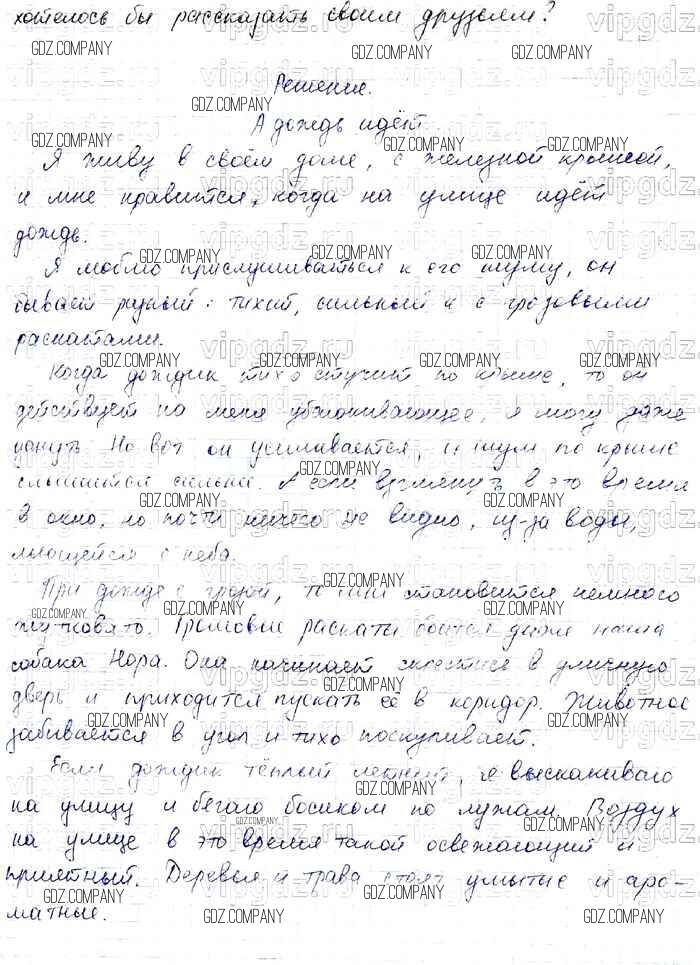 хотелось бы рассказать своим друзьям?
Решение.
А дождь идёт.
Я живу в своём доме, с железной крышей,
и мне нравится, когда на улице идёт
дождь.
Я люблю прислушиваться к его шуму, он
бывает разный: тихий, сильный и с грозовыми
раскатами.
Когда дождик тихо стучит по крыше, то он
действует на меня убаюкивающее, я могу даже
уснуть. Но вот он усиливается, и шум по крыше
слышится сильней. А если взглянуть в это время
в окно, но почти ничего не видно, из-за воды,
льющейся с неба.
При дожде с грозой, то становится немного
жутковато. Громовые раскаты боится даже наша
собака Нора. Она начинает скрестись в уличную
дверь и приходится пускать её в коридор. Животное
забивается в угол и тихо поскуливает.
Если дождик тёплый летний, я выскакиваю
на улицу и бегаю босиком по лужам. Воздух
на улице в это время такой освежающий и
приятный. Деревья и трава стоят умытые и аро-
матные.